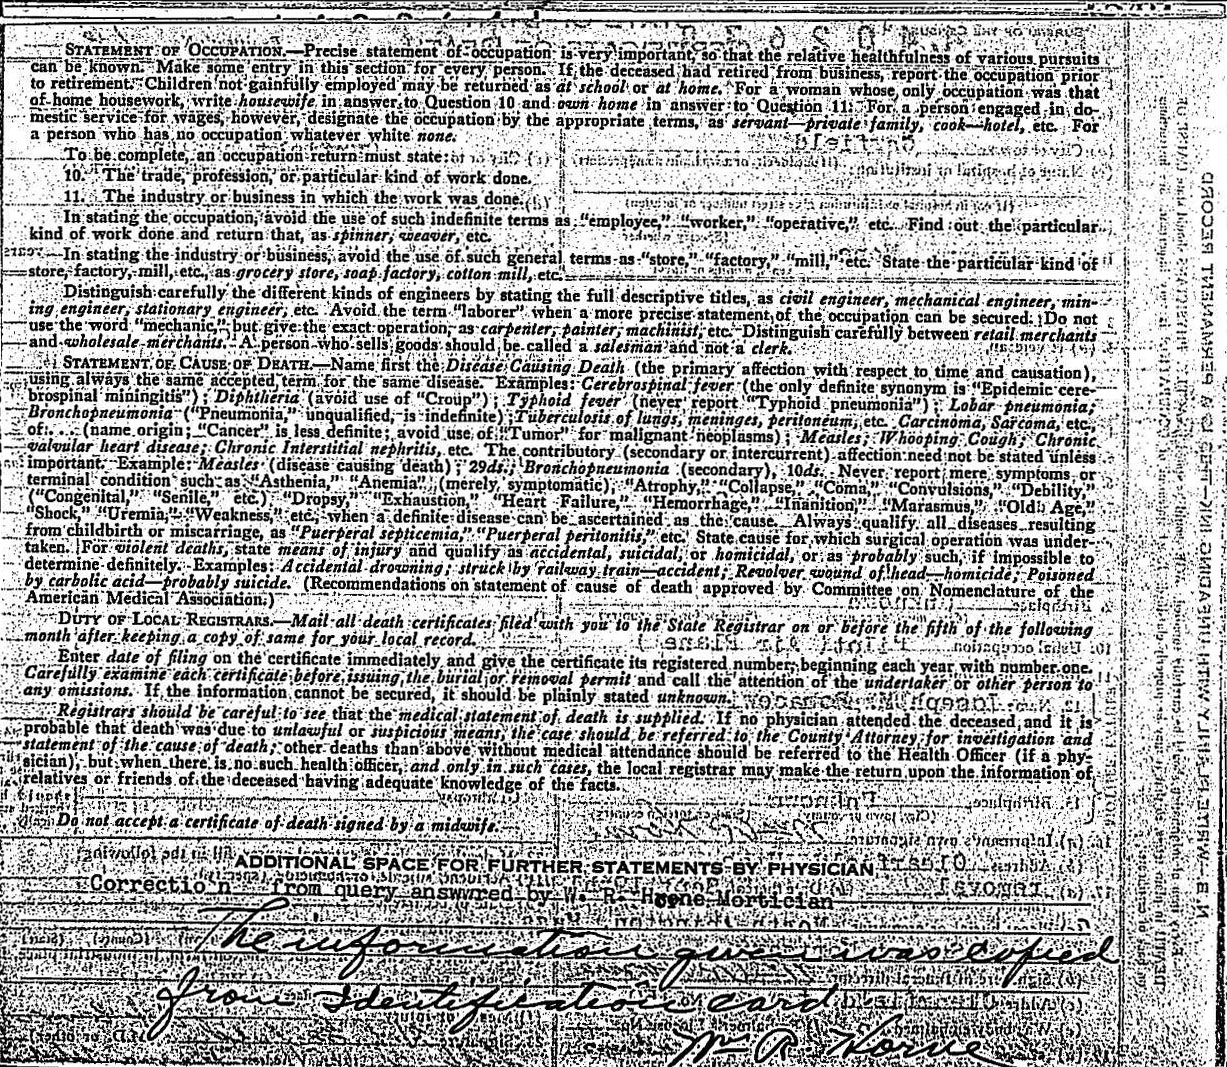 STATEMENT OF OCCUPATION.—Precise statement of occupation is very important, so that the relative healthfulness of various pursuits
can be known. Make some entry in this section for every person. If the deceased had retired from business, report the occupation prior
to retirement. Children not gainfully employed may be returned as at school or at home. For a woman whose only occupation was that
of home housework, write housewife in answer to Question 10 and own home in answer to Question 11. For a person engaged in do-
mestic service for wages, however, designate the occupation by the appropriate terms, as servant—private family, cook—hotel, etc. For
a person who has no occupation whatever white none.
To be complete, an occupation return must state:
10. The trade, profession, or particular kind of work done.
11. The industry or business in which the work was done.
In stating the occupation, avoid the use of such indefinite terms as "employee," "worker," "operative," etc. Find out the particular
kind of work done and return that, as spinner, weaver, etc.
In stating the industry or business, avoid the use of such general terms as "store," "factory," "mill," etc. State the particular kind of
store, factory, mill, etc., as grocery store, soap factory, cotton mill, etc.
Distinguish carefully the different kinds of engineers by stating the full descriptive titles, as civil engineer, mechanical engineer, min-
ing engineer, stationary engineer, etc. Avoid the term "laborer" when a more precise statement of the occupation can be secured. Do not
use the word "mechanic," but give the exact operation, as carpenter, painter, machinist, etc. Distinguish carefully between retail merchants
and wholesale merchants. A person who sells goods should be called a salesman and not a clerk.
STATEMENT OF CAUSE OF DEATH.—Name first the Disease Causing Death (the primary affection with respect to time and causation),
using always the same accepted term for the same disease. Examples: Cerebrospinal fever (the only definite synonym is "Epidemic cere-
brospinal miningitis"); Diphtheria (avoid use of "Croup"); Typhoid fever (never report "Typhoid pneumonia"); Lobar pneumonia;
Bronchopneumonia ("Pneumonia," unqualified, is indefinite); Tuberculosis of lungs, meninges, peritoneum, etc. Carcinoma, Sarcoma, etc.,
of.... (name origin; "Cancer" is less definite; avoid use of "Tumor" for malignant neoplasms); Measles; Whooping Cough; Chronic
valvular heart disease; Chronic Interstitial nephritis, etc. The contributory (secondary or intercurrent) affection need not be stated unless
important. Example: Measles (disease causing death); 29ds.; Bronchopneumonia (secondary), 10ds. Never report mere symptoms or
terminal condition such as "Asthenia," "Anemia" (merely symptomatic), "Atrophy," "Collapse," "Coma," "Convulsions," "Debility,"
("Congenital," "Senile," etc.) "Dropsy," "Exhaustion," "Heart Failure," "Hemorrhage," "Inanition," "Marasmus," "Old Age,"
"Shock," "Uremia," "Weakness," etc., when a definite disease can be ascertained as the cause. Always qualify all diseases resulting
from childbirth or miscarriage, as "Puerperal septicemia," "Puerperal peritonitis," etc. State cause for which surgical operation was under-
taken. For violent deaths, state means of injury and qualify as accidental, suicidal, or homicidal, or as probably such, if impossible to
determine definitely. Examples: Accidental drowning; struck by railway train—accident; Revolver wound of head—homicide; Poisoned
by carbolic acid—probably suicide. (Recommendations on statement of cause of death approved by Committee on Nomenclature of the
American Medical Association.)
DUTY OF LOCAL REGISTRARS.—Mail all death certificates filed with you to the State Registrar on or before the fifth of the following
month after keeping a copy of same for your local record.
Enter date of filing on the certificate immediately and give the certificate its registered number, beginning each year with number one.
Carefully examine each certificate before issuing the burial or removal permit and call the attention of the undertaker or other person to
any omissions. If the information cannot be secured, it should be plainly stated unknown.
Registrars should be careful to see that the medical statement of death is supplied. If no physician attended the deceased and it is
probable that death was due to unlawful or suspicious means, the case should be referred to the County Attorney for investigation and
statement of the cause of death; other deaths than above without medical attendance should be referred to the Health Officer (if a phy-
sician), but when there is no such health officer, and only in such cases, the local registrar may make the return upon the information of
relatives or friends of the deceased having adequate knowledge of the facts.
Do not accept a certificate of death signed by a midwife.
ADDITIONAL SPACE FOR FURTHER STATEMENTS BY PHYSICIAN
Correction from query answred by W. R. Horne Mortician
The information given was copied
from Identification card
Wm R. Horne